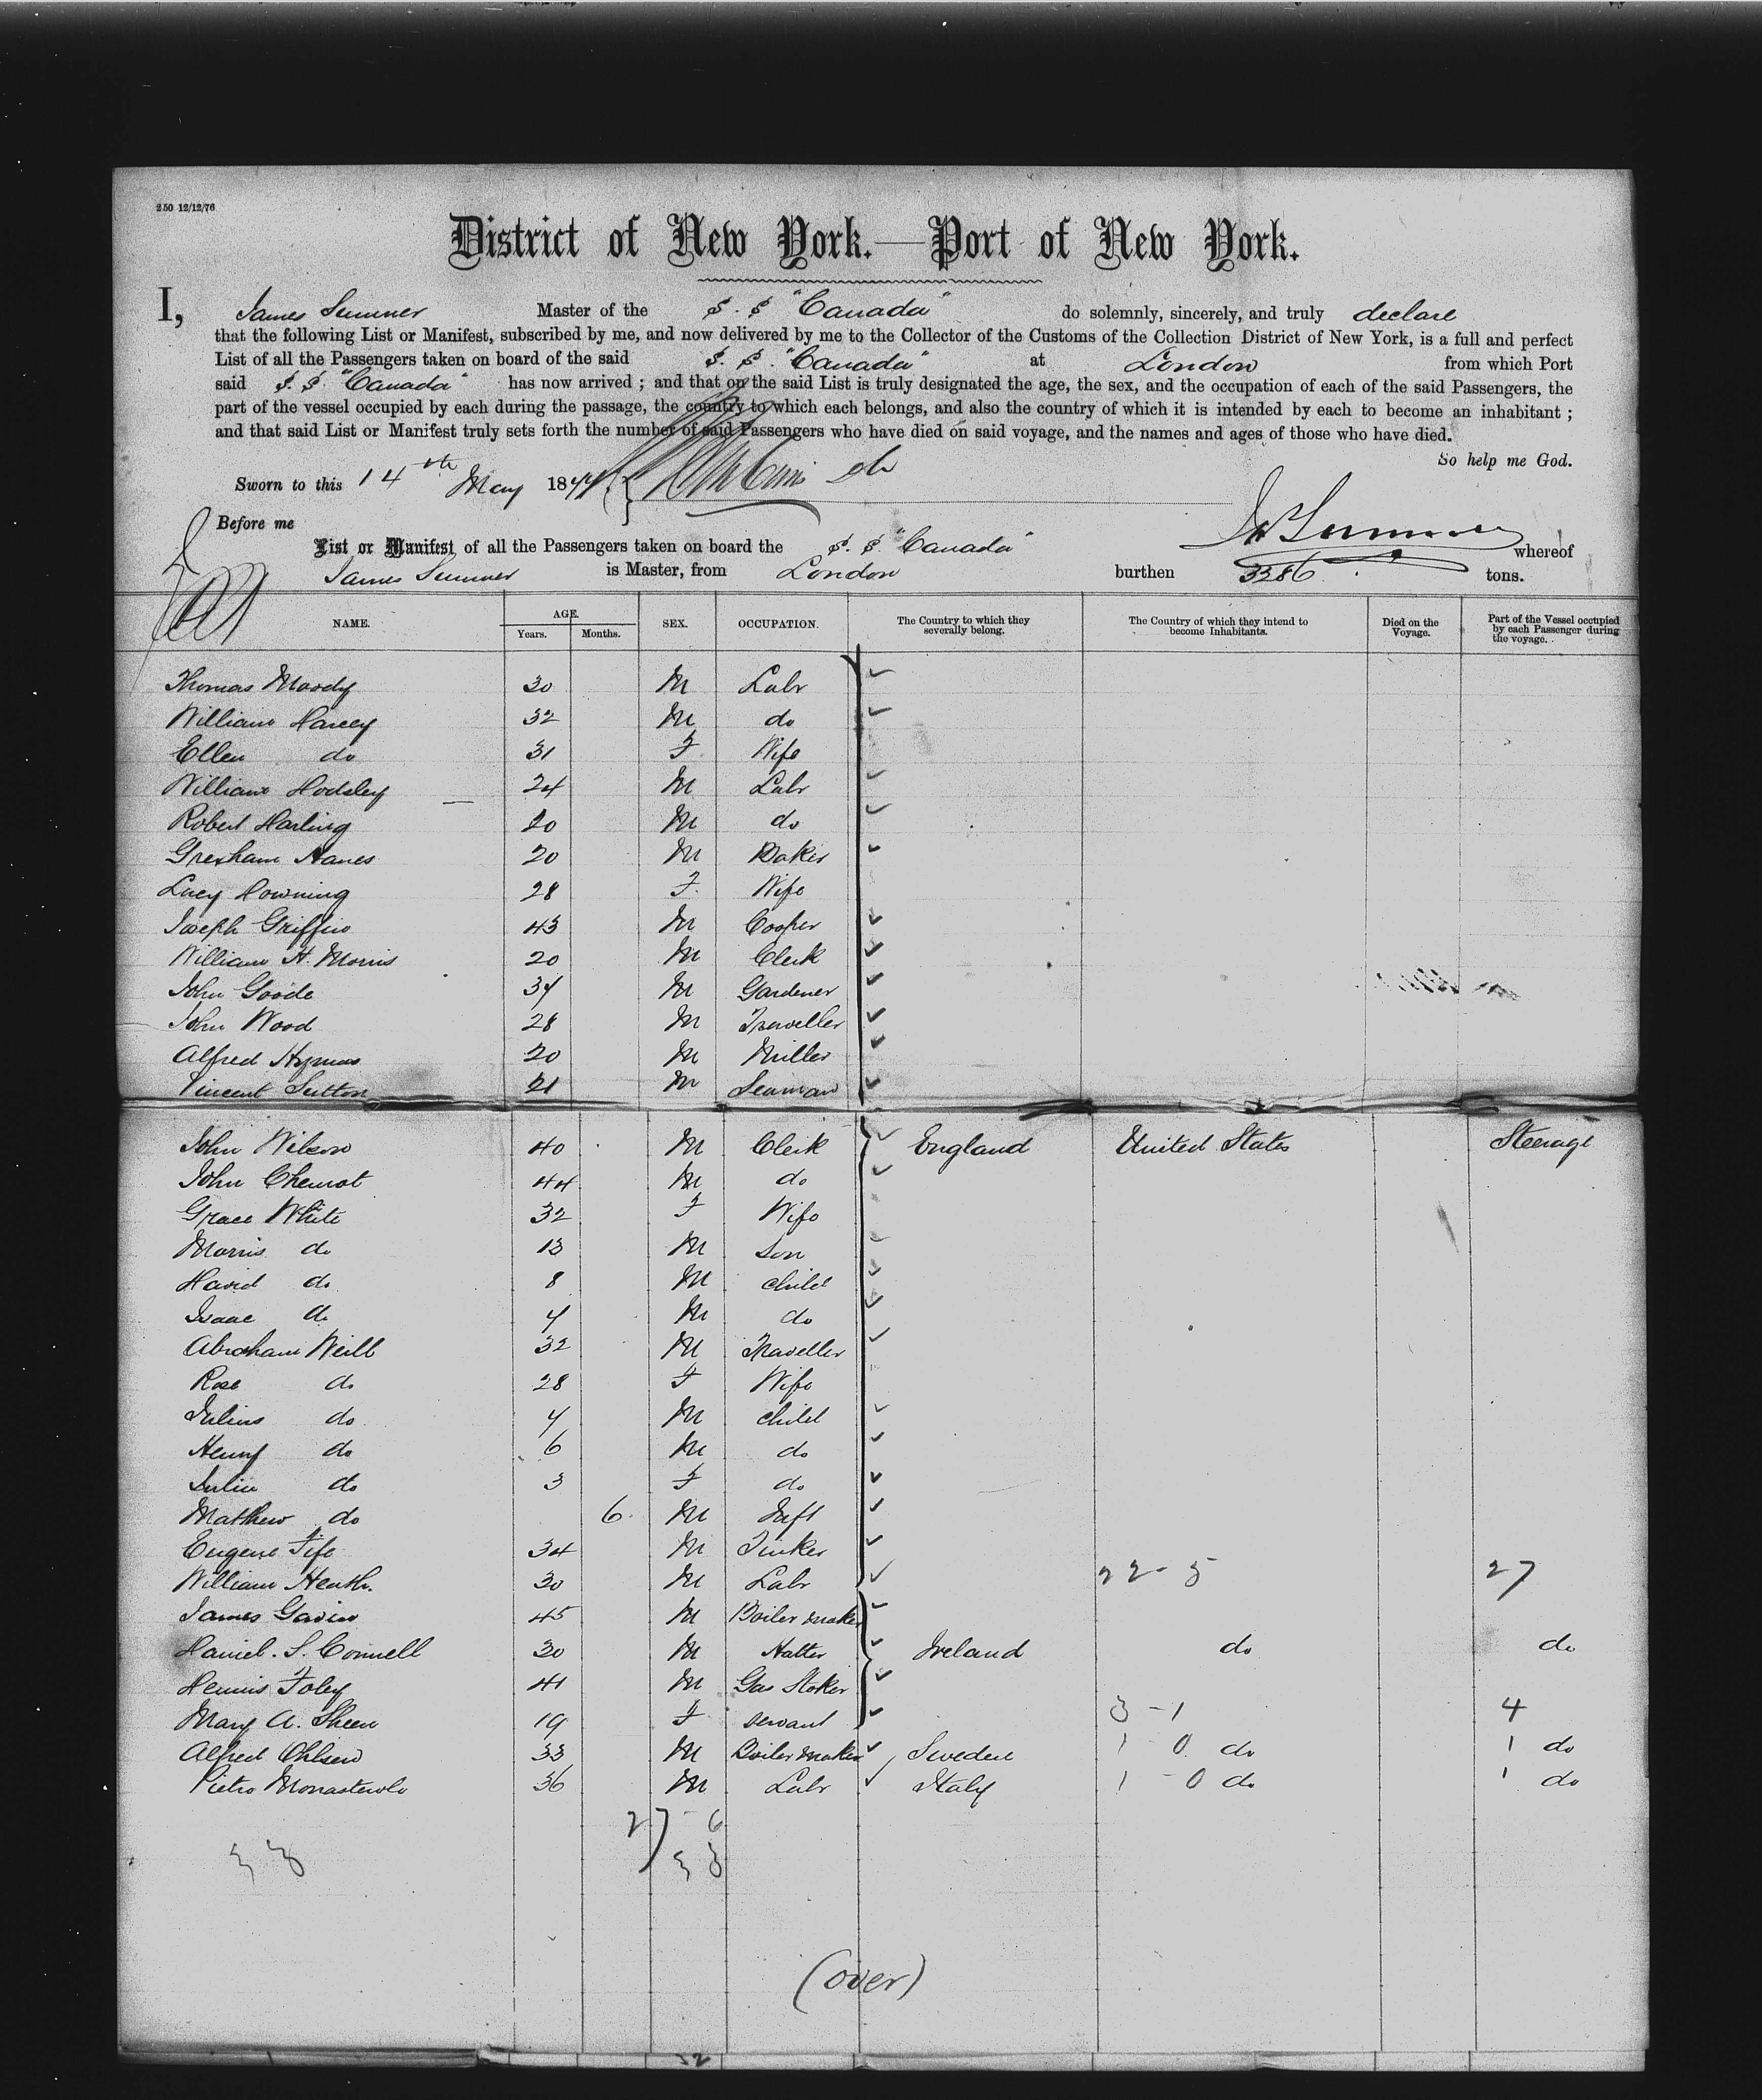 250 12/12/76
District of New York.—Port of New York.
I, James Sumner Master of the S. S "Canada" do solemnly, sincerely, and truly declare
that the following List or Manifest, subscribed by me, and now delivered by me to the Collector of the Customs of the Collection District of New York, is a full and perfect
List of all the Passengers taken on board of the said S. S. "Canada" at London from which Port
said S. S. "Canada" has now arrived ; and that on the said List is truly designated the age, the sex, and the occupation of each of the said Passengers, the
part of the vessel occupied by each during the passage, the country to which each belongs, and also the country of which it is intended by each to become an inhabitant ;
and that said List or Manifest truly sets forth the number of said Passengers who have died on said voyage, and the names and ages of those who have died.
So help me God.
Sworn to this 14th May 187
Before me
Js Sumner
List or Manifest of all the Passengers taken on board the S. S. "Canada" whereof
James Sumner is Master, from London burthen 3286 tons.
NAME. AGE. Years. Months. SEX. OCCUPATION. The Country to which they severally belong. The Country of which they intend to become Inhabitants. Died on the Voyage. Part of the Vessel occupied by each Passenger during the voyage.
Thomas Moody 30 M Labr
William Harvey 32 M do
Ellen do 31 F Wife
William Hodsley 24 M Labr
Robert Harling 20 M do
Gresham Nanes 20 M Baker
Lucy Downing 28 F. Wife
Joseph Griffin 43 M Cooper
William H. Morris 20 M Clerk
John Goode 34 M Gardener
John Wood 28 M Traveller
Alfred Hymas 20 M Miller
Vincent Sutton 21 M Seaman
John Wilson 40 M Clerk England United States Steerage
John Chemot 44 M do
Grace White 32 F Wife
Morris do 13 M Son
David do 8 M child
Isaac do 4 M do
Abraham Weill 32 M Traveller
Rose do 28 F Wife
Julius do 7 M child
Henry do 6 M do
Julia do 3 F do
Matthew do 6 M Inft
Eugene Fife 34 M Tinker
William Heath. 30 M Labr 22-5 27
James Gavin 45 M Boiler maker
Daniel. S. Connell 30 M Hatter Ireland do do
Dennis Foley 41 M Gas Stoker
Mary A. Sheen 19 F servant 3-1 4
Alfred Ohlsen 33 M Boiler maker Sweden 1 0 do 1 do
Pietro Monasterolo 36 M Labr Italy 1-0 do 1 do
27-6
33 33
(over)